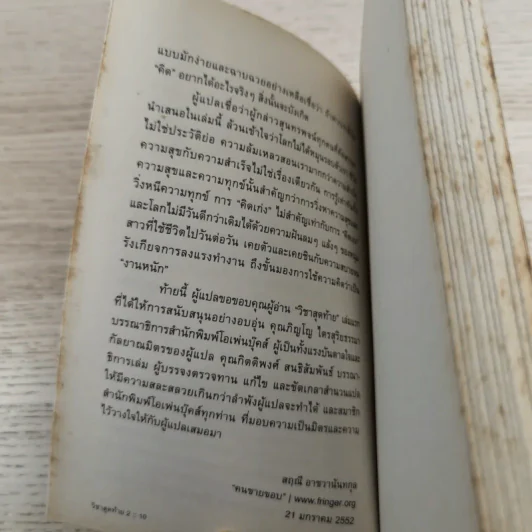 แบบมักง่ายและฉาบฉวยอย่างเหลือเชื่อว่า
"คิด" อยากได้อะไรจริงๆ สิ่งนั้นจะบังเกิด
ผู้แปลเชื่อว่าผู้กล่าวสุนทรพจน์ทุกคนที่
นำเสนอในเล่มนี้ ล้วนเข้าใจว่าโลกไม่ได้หมุนรอบตัวเรา
ไม่ใช่ประวัติย่อ ความล้มเหลวสอนเรามากกว่าความสำเร็จ
ความสุขกับความสำเร็จไม่ใช่เรื่องเดียวกัน การรู้เท่าทัน
ความสุขและความทุกข์นั้นสำคัญกว่าการวิ่งหาความสุข
วิ่งหนีความทุกข์ การ "คิดเก่ง" ไม่สำคัญเท่ากับการ
และโลกไม่มีวันดีกว่าเดิมได้ด้วยความฝันลมๆ แล้งๆ ของ
สาวที่ใช้ชีวิตไปวันต่อวัน เคยตัวและเคยชินกับความสบาย
รังเกียจการลงแรงทำงาน ถึงขั้นมองการใช้ความคิดว่าเป็น
"งานหนัก"
ท้ายนี้ ผู้แปลขอขอบคุณผู้อ่าน "วิชาสุดท้าย" เล่มแรก
ที่ได้ให้การสนับสนุนอย่างอบอุ่น คุณภิญโญ ไตรสุริยธรรมา
บรรณาธิการสำนักพิมพ์โอเพ่นบุ๊คส์ ผู้เป็นทั้งแรงบันดาลใจและ
กัลยาณมิตรของผู้แปล คุณกิตติพงศ์ สนธิสัมพันธ์ บรรณา-
ธิการเล่ม ผู้บรรจงตรวจทาน แก้ไข และขัดเกลาสำนวนแปล
ให้มีความสละสลวยเกินกว่าลำพังผู้แปลจะทำได้ และสมาชิก
สำนักพิมพ์โอเพ่นบุ๊คส์ทุกท่าน ที่มอบความเป็นมิตรและความ
ไว้วางใจให้กับผู้แปลเสมอมา
สฤณี อาชวานันทกุล
"คนชายขอบ" | www.fringer.org
21 มกราคม 2552
วิชาสุดท้าย 2 : 10